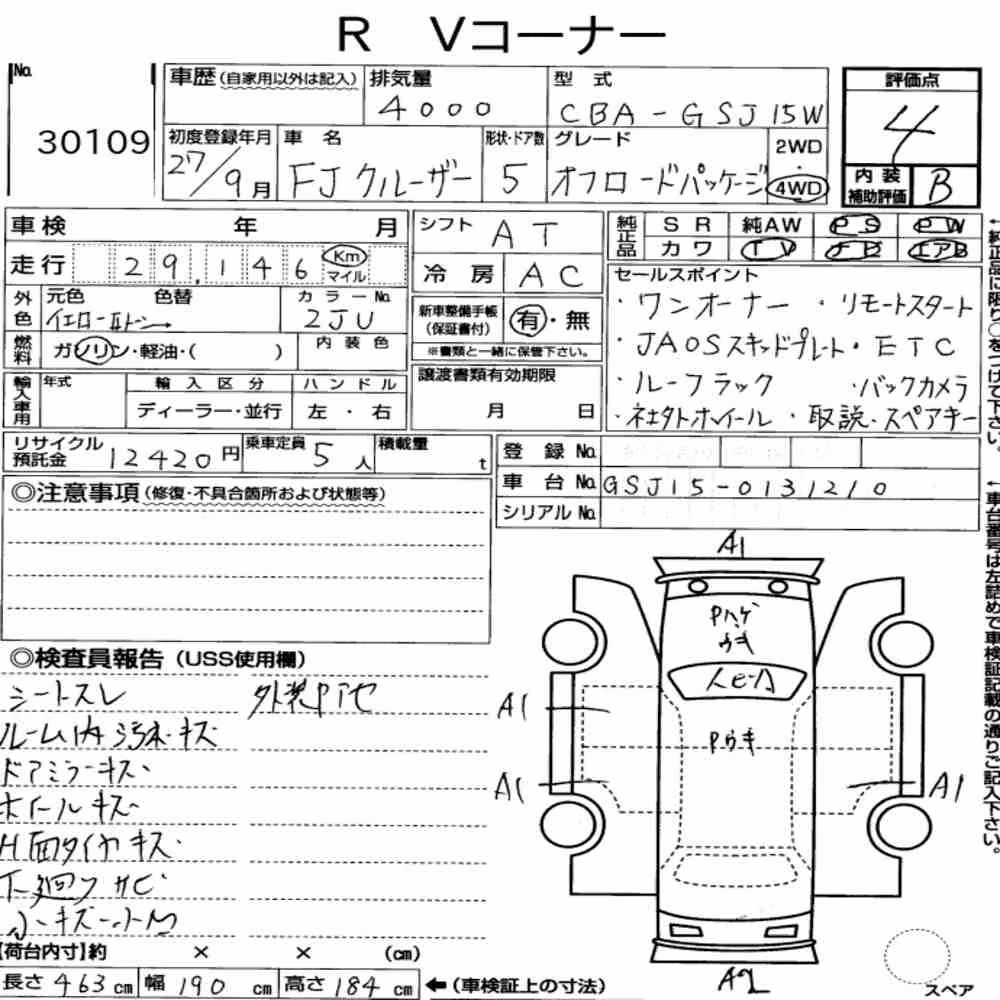 R Vコーナー
No. 30109
車歴(自家用以外は記入) 排気量 4000 型式 CBA-GSJ15W
評価点 4
初度登録年月 27/9月 車名 FJクルーザー 形状・ドア数 5 グレード オフロードパッケージ 2WD・4WD
内装補助評価 B
車検 年 月 シフト AT
純正品 SR 純AW PS PW
カワ TV ナビ エアB
走行 29,146 Km マイル 冷房 AC
外色 元色 イエローIIトン 色替 カラーNo. 2JU
新車整備手帳(保証書付) 有・無
※書類と一緒に保管下さい。
燃料 ガソリン・軽油・( ) 内装色
輸入車用 年式 輸入区分 ハンドル
ディーラー・並行 左・右
譲渡書類有効期限 月 日
セールスポイント
・ワンオーナー ・リモートスタート
・JAOSスキッドプレート・ETC
・ルーフラック ・バックカメラ
・社外ホイール ・取説・スペアキー
←純正品に限り○をつけて下さい。
リサイクル預託金 12420円 乗車定員 5人 積載量 t
登録No.
車台No. GSJ15-0131210
シリアルNo.
←車台番号は左詰めで車検証記載の通りご記入下さい。
◎注意事項(修復・不具合箇所および状態等)
◎検査員報告(USS使用欄)
シートスレ
ルーム内汚れ・キズ
ドアミラーキズ
ホイールキズ
H面タイヤキズ
下廻りサビ
小キズ・小凹
A1
Pハゲ
ウキ
人ヒA
Pウキ
A1
A1
A1
A2
スペア
【荷台内寸】約 × × (cm)
長さ 463 cm 幅 190 cm 高さ 184 cm ←(車検証上の寸法)